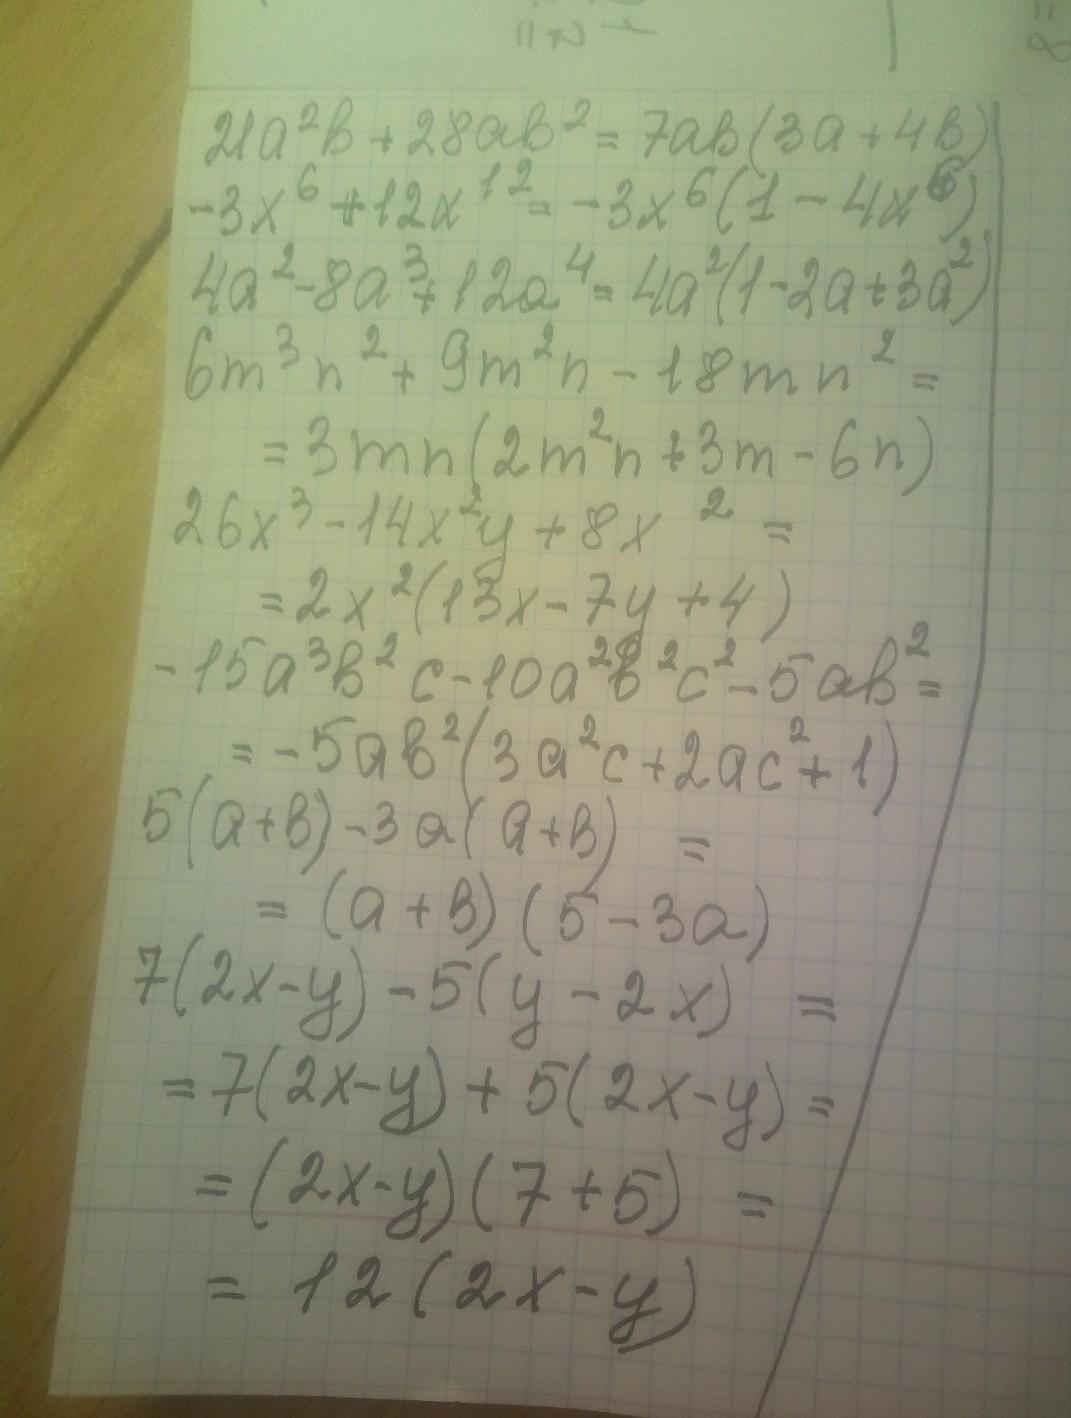 21a²b + 28ab² = 7ab(3a + 4b)
-3x⁶ + 12x¹² = -3x⁶(1 - 4x⁶)
4a² - 8a³ + 12a⁴ = 4a²(1 - 2a + 3a²)
6m³n² + 9m²n - 18mn² =
= 3mn(2m²n + 3m - 6n)
26x³ - 14x²y + 8x² =
= 2x²(13x - 7y + 4)
-15a³b²c - 10a²b²c² - 5ab² =
= -5ab²(3a²c + 2ac² + 1)
5(a+b) - 3a(a+b) =
= (a+b)(5 - 3a)
7(2x-y) - 5(y - 2x) =
= 7(2x-y) + 5(2x-y) =
= (2x-y)(7+5) =
= 12(2x-y)